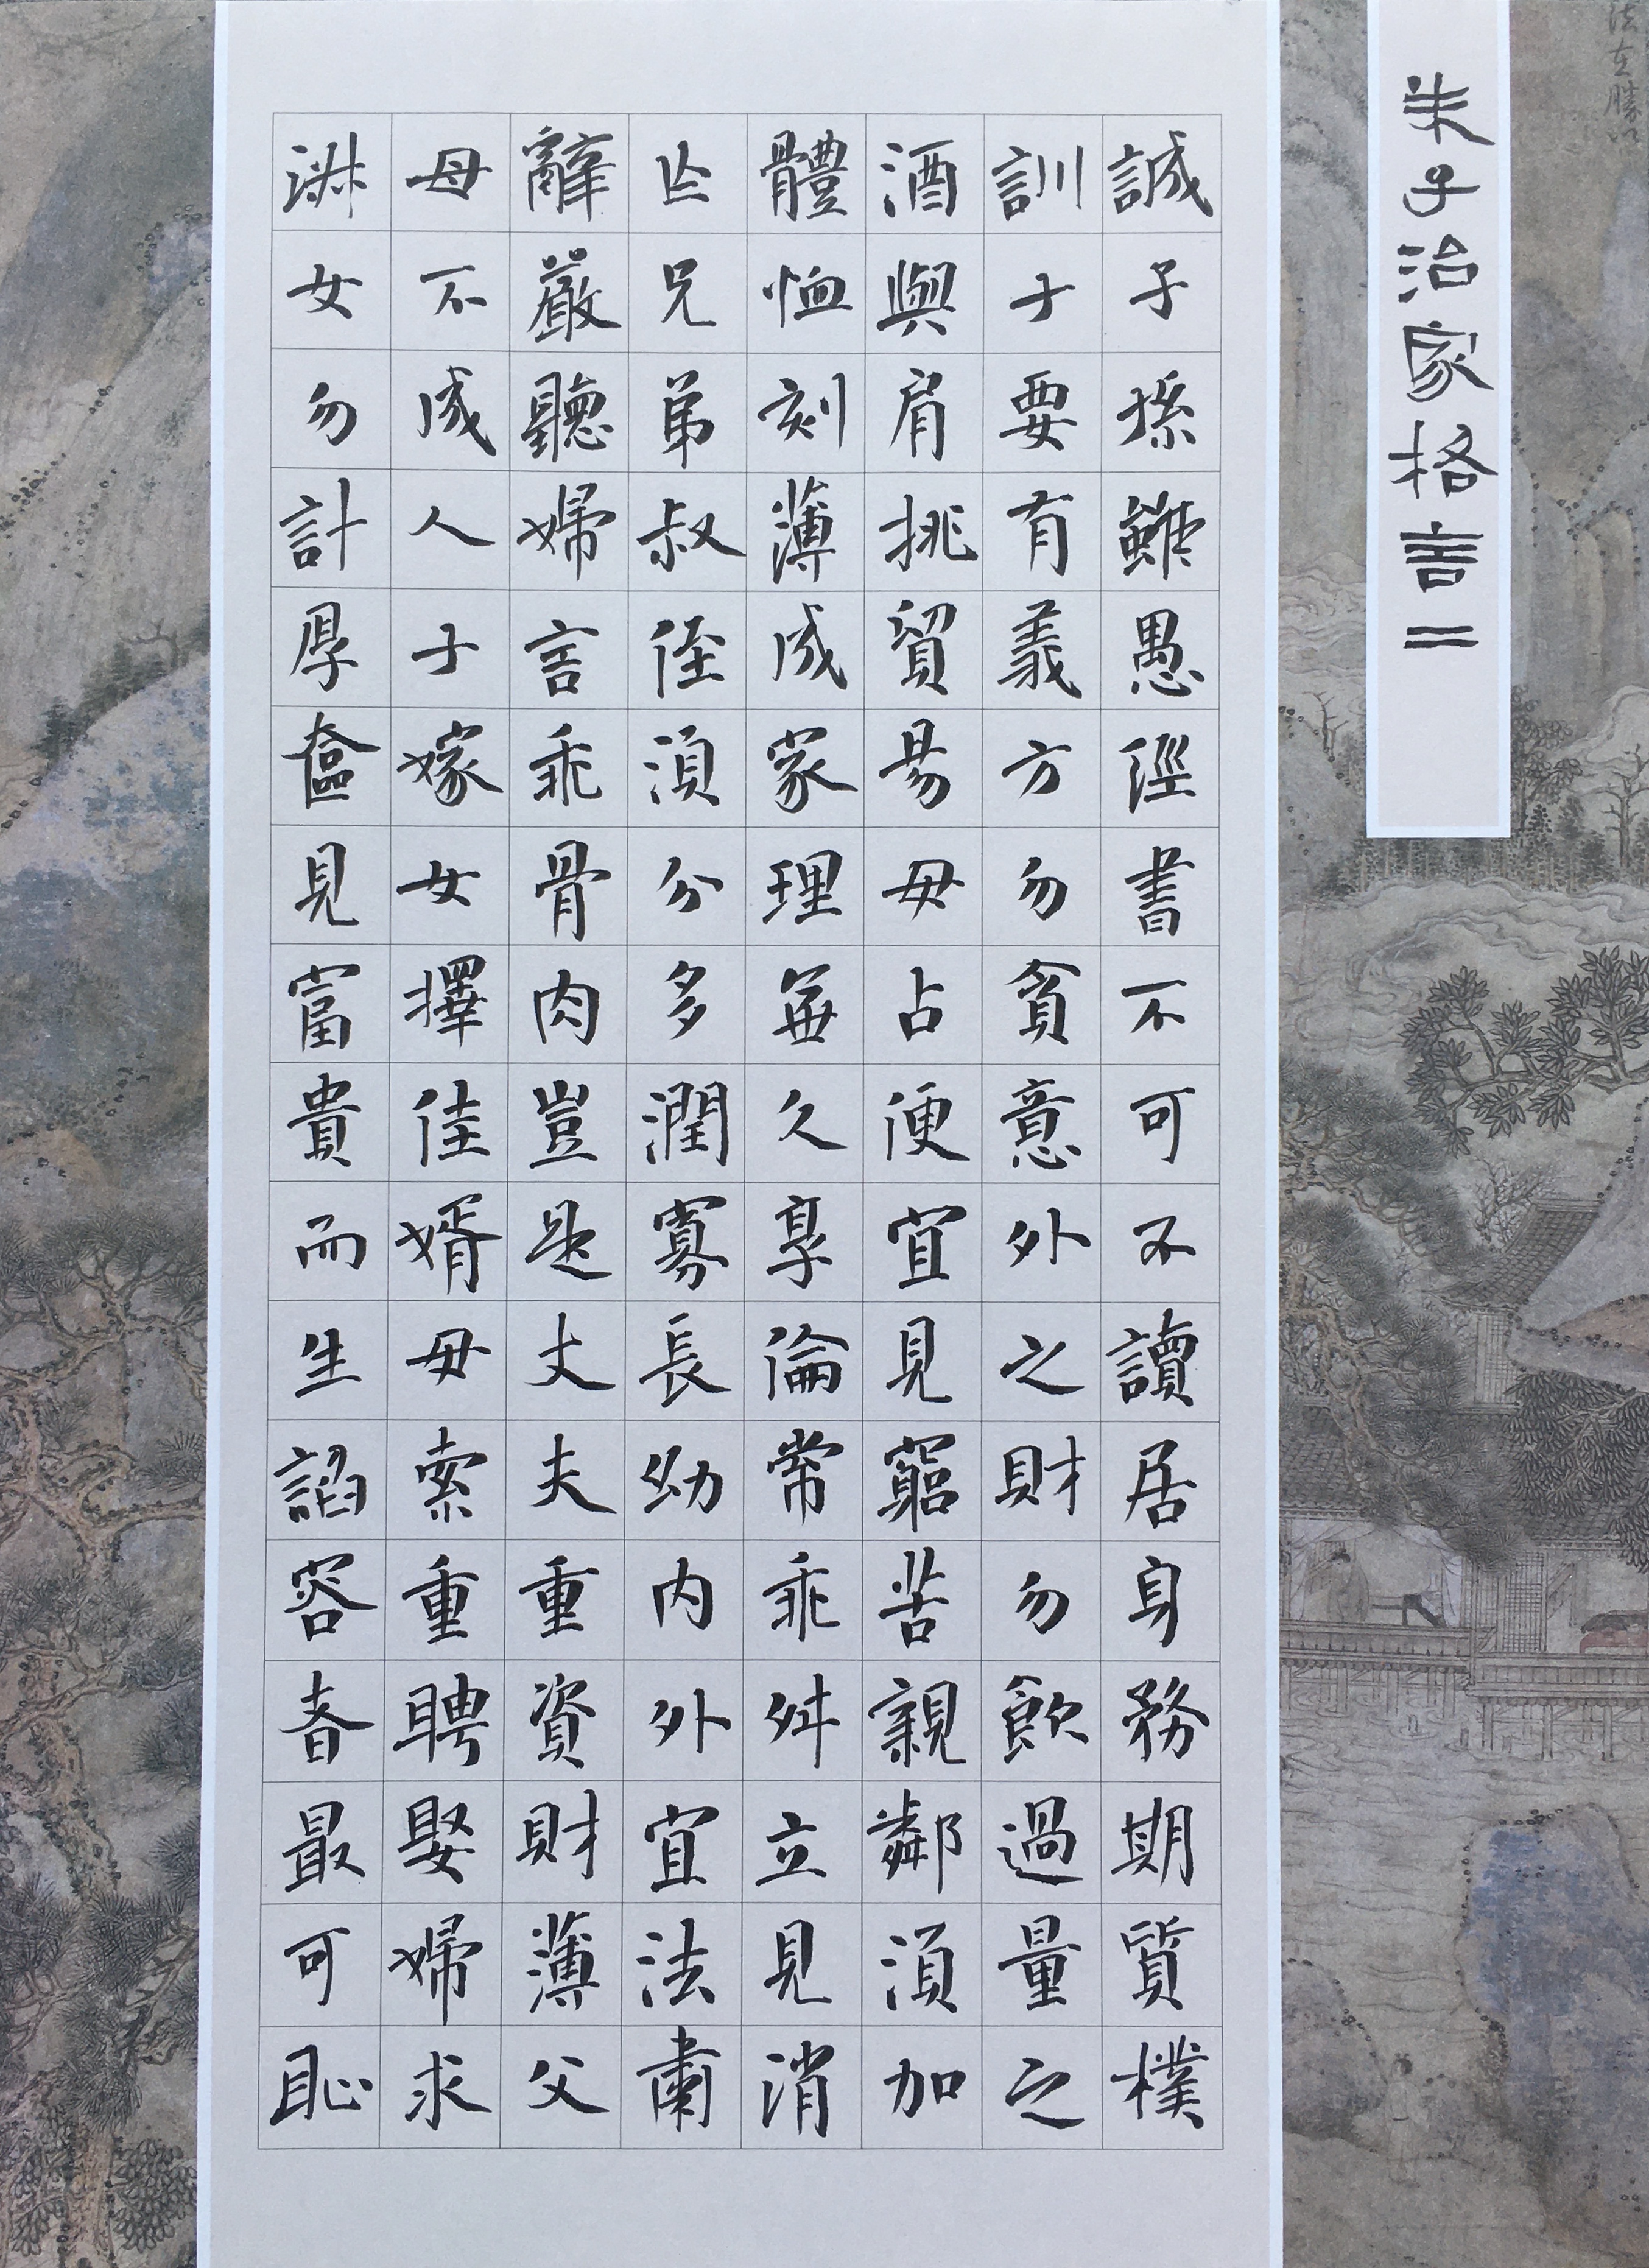 朱子治家格言二
誠子孫雖愚經書不可不讀居身務期質樸
訓子要有義方勿貪意外之財勿飲過量之
酒與肩挑貿易毋占便宜見窮苦親鄰須加
體恤刻薄成家理無久享倫常乖舛立見消
亡兄弟叔侄須分多潤寡長幼内外宜法肅
辭嚴聽婦言乖骨肉豈是丈夫重資財薄父
母不成人子嫁女擇佳婿毋索重聘娶婦求
淑女勿計厚奩見富貴而生諂容者最可恥